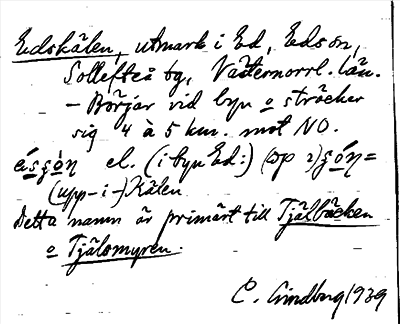 Edskälen, utmark i Ed, Edsön,
Sollefteå tg, Västernorrl. län.
- Börjar vid byn o sträcker
sig 4 à 5 km. mot NO.
el. (i byn Ed:)
(upp-i-) Kälen
Detta namn är primärt till Tjälbäcken
o Tjälsmyren.
C. Lindberg 1939